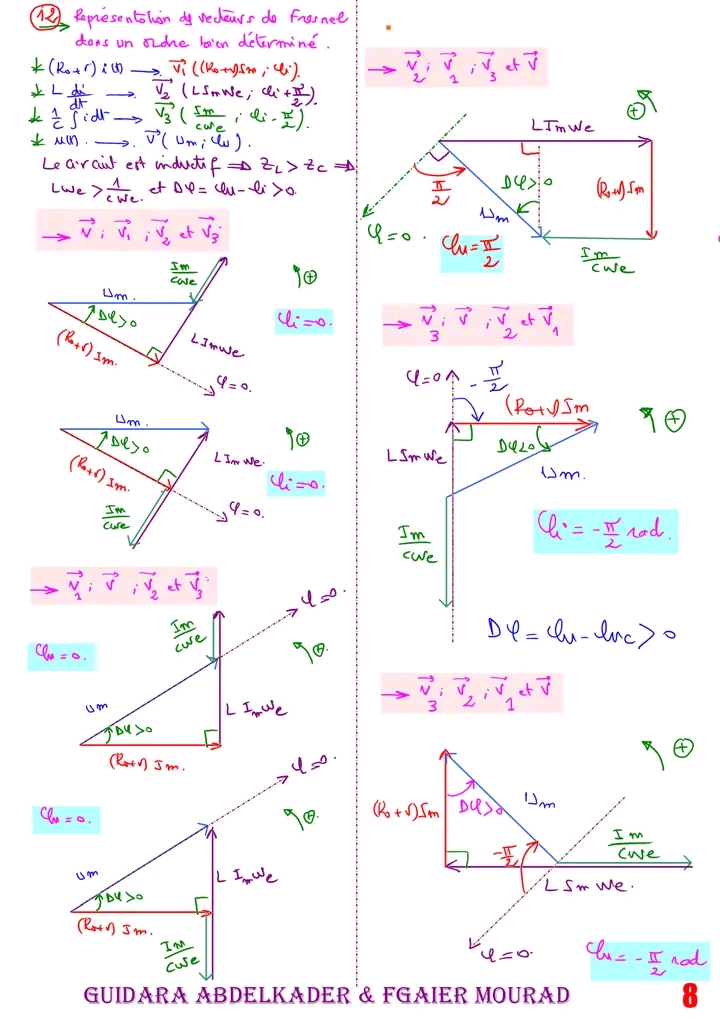 12) Représentation de vecteurs de Fresnel
dans un ordre bien déterminé.
* (R₀+r) i(t) → V⃗₁ ((R₀+r)Im ; φi).
* L di/dt → V⃗₂ (LImωe ; φi+π/2).
* 1/C ∫idt → V⃗₃ (Im/cωe ; φi-π/2).
* u(t) → V⃗ (Um ; φu).
Le circuit est inductif ⇒ ZL > ZC ⇒
Lωe > 1/cωe et Δφ = φu-φi > 0.
→ V⃗ ; V⃗₁ ; V⃗₂ et V⃗₃
Im/cωe
⊕
Um.
φi=0.
Δφ>0
(R₀+r)Im.
LImωe
φ=0.
Um.
⊕
Δφ>0
LImωe.
(R₀+r)Im.
φi=0.
Im/cωe
φ=0.
→ V⃗₁ ; V⃗ ; V⃗₂ et V⃗₃
φ=0.
Im/cωe
φu=0.
⊕
Um
L Imωe
Δφ>0
(R₀+r) Im.
φ=0.
φu=0.
⊕
Um
L Imωe
Δφ>0
(R₀+r) Im.
Im/cωe
→ V⃗₂ ; V⃗₁ ; V⃗₃ et V⃗
⊕
LImωe
π/2
Δφ>0
(R₀+r)Im
Um
φ=0.
φu=π/2
Im/cωe
→ V⃗₃ ; V⃗ ; V⃗₂ et V⃗₁
φ=0
-π/2
(R₀+r)Im
⊕
Δφ<0
LImωe
Um.
Im/cωe
φi = -π/2 rad.
Δφ = φu-φuc > 0
→ V⃗₃ ; V⃗₂ ; V⃗₁ et V⃗
⊕
(R₀+r)Im
Δφ>0
Um
-π/2
Im/cωe
LImωe.
φ=0.
φu = -π/2 rad
GUIDARA ABDELKADER & FGAIER MOURAD
8